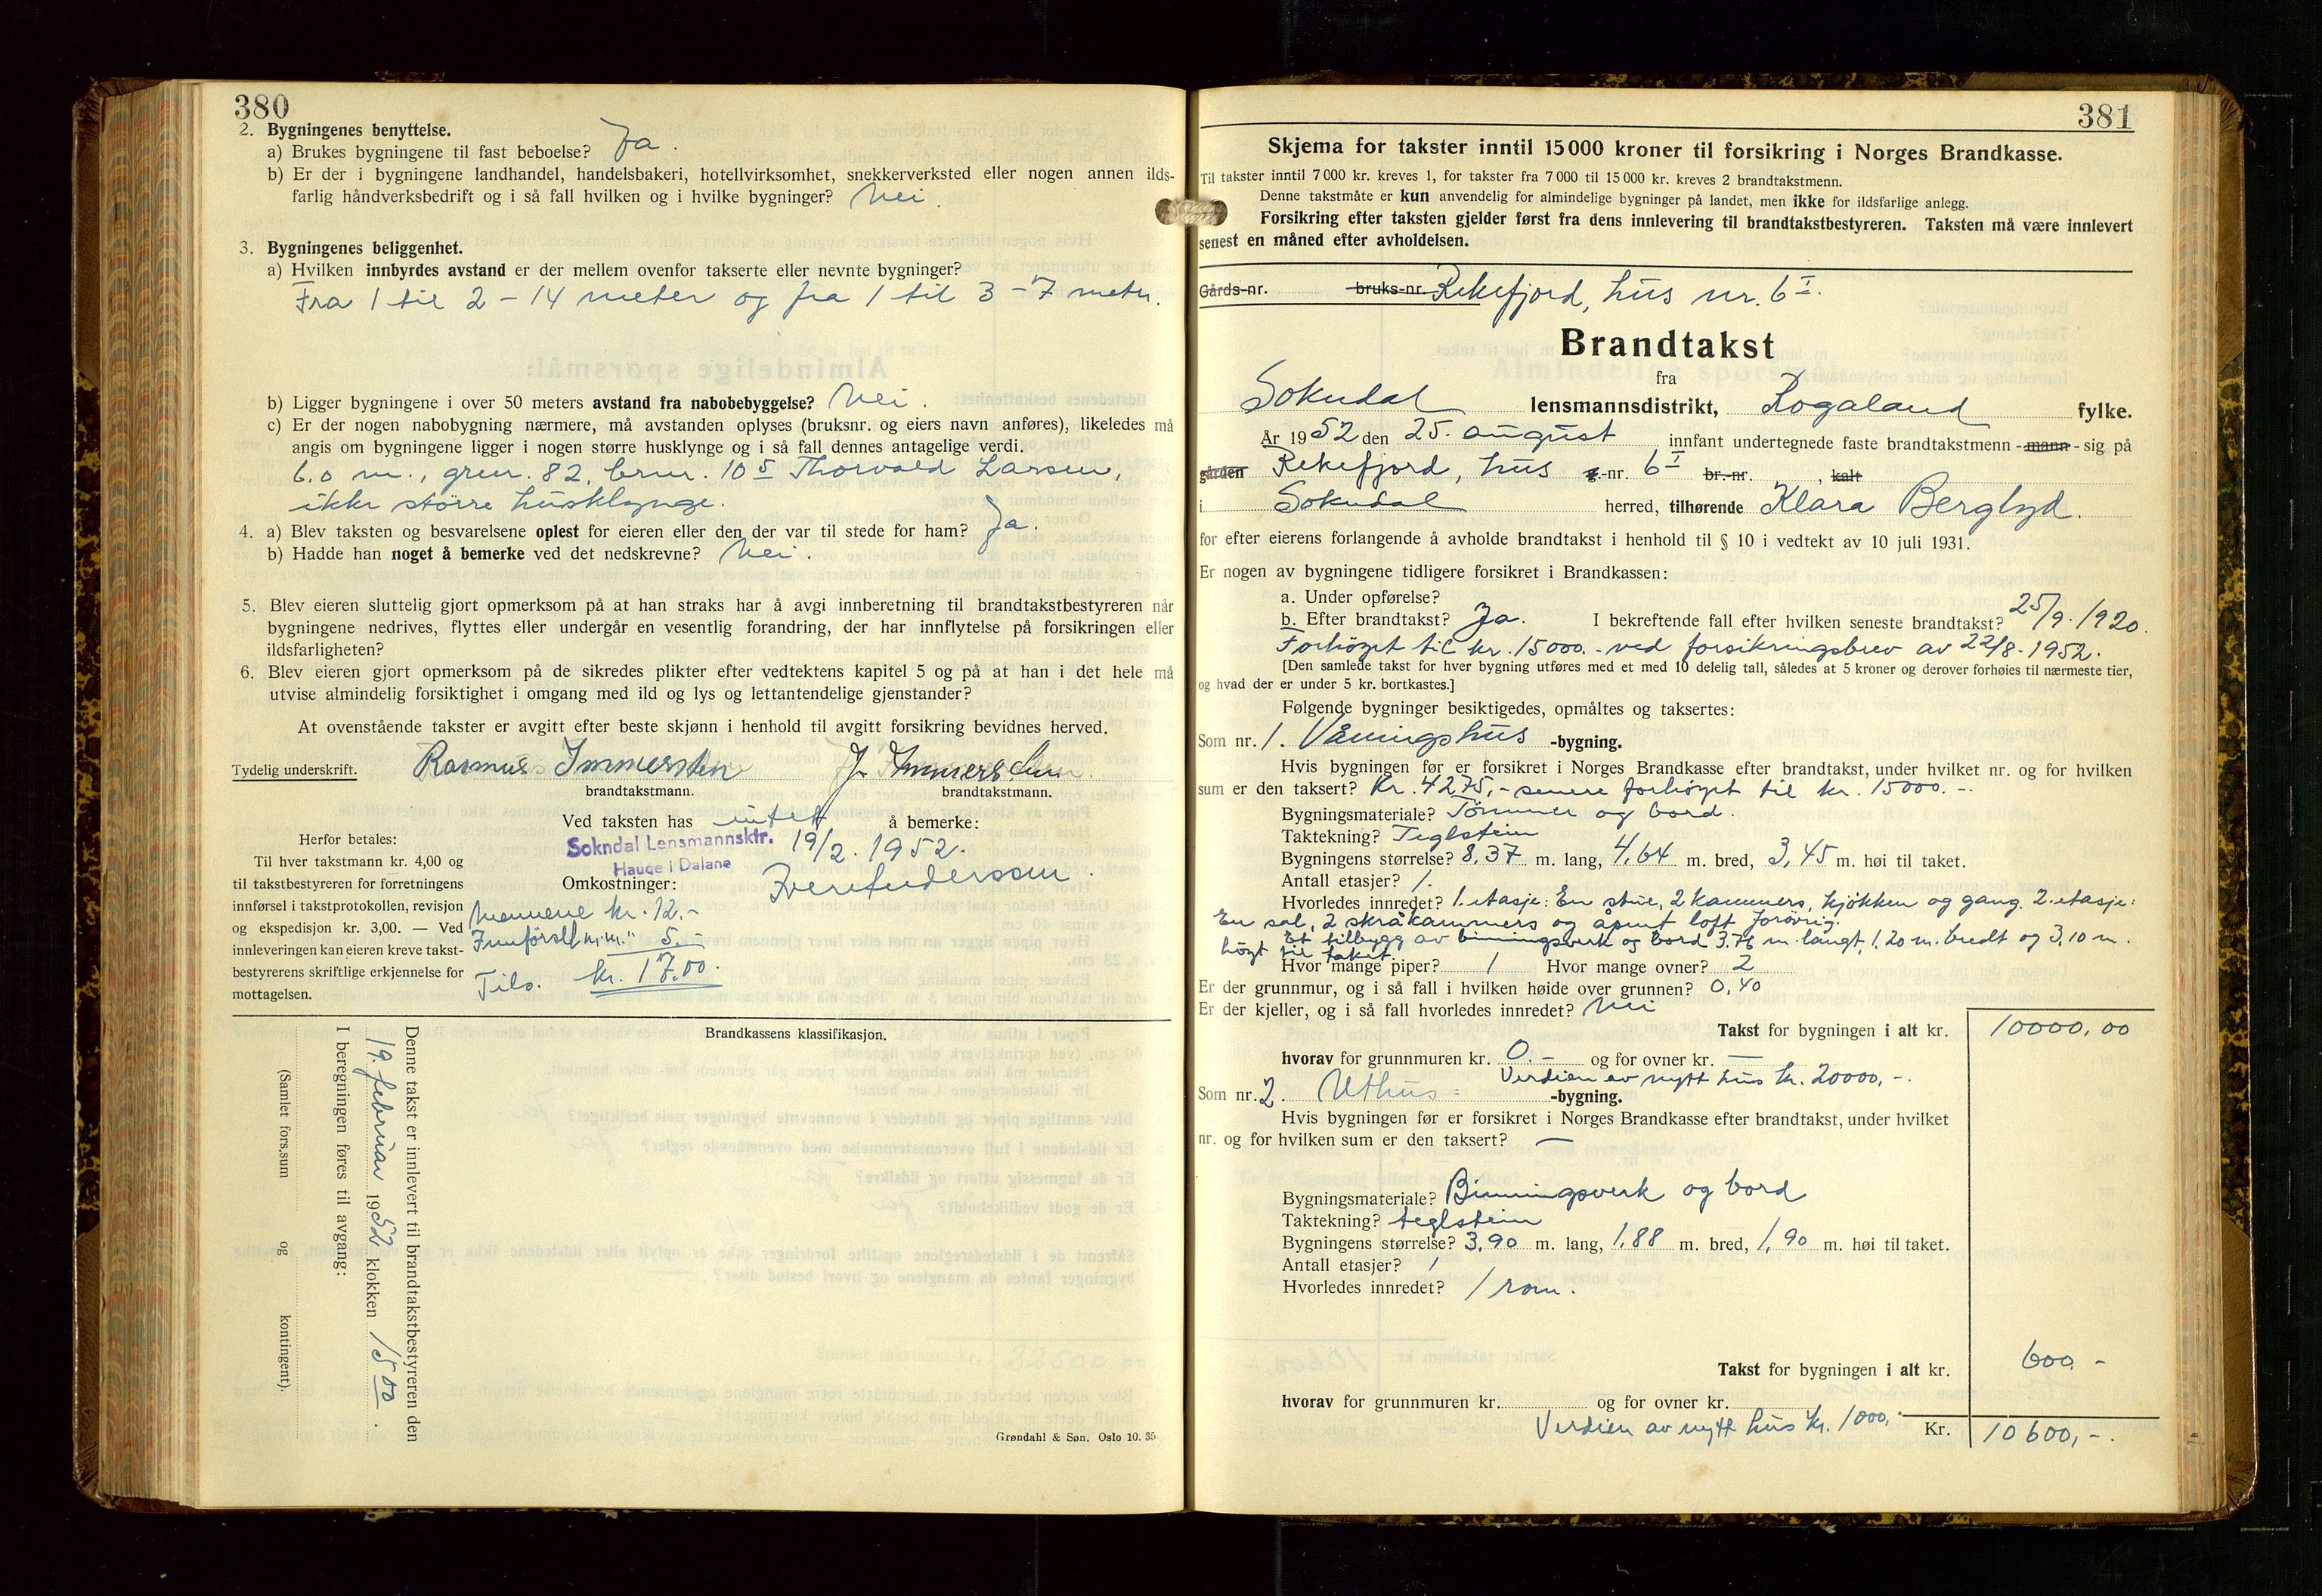 380
2. Bygningenes benyttelse.
a) Brukes bygningene til fast beboelse? Ja.
b) Er der i bygningene landhandel, handelsbakeri, hotellvirksomhet, snekkerverksted eller nogen annen ilds-
farlig håndverksbedrift og i så fall hvilken og i hvilke bygninger? Nei.
3. Bygningenes beliggenhet.
a) Hvilken innbyrdes avstand er der mellem ovenfor takserte eller nevnte bygninger?
Fra 1 til 2 - 14 meter og fra 1 til 3 - 7 meter.
b) Ligger bygningene i over 50 meters avstand fra nabobebyggelse? Nei.
c) Er der nogen nabobygning nærmere, må avstanden oplyses (bruksnr. og eiers navn anføres), likeledes må
angis om bygningene ligger i nogen større husklynge og i så fall dennes antagelige verdi.
6.0 m., grnr. 82, brnr. 10 5 Thorvald Larsen,
ikke större husklynge.
4. a) Blev taksten og besvarelsene oplest for eieren eller den der var til stede for ham? Ja.
b) Hadde han noget å bemerke ved det nedskrevne? Nei.
5. Blev eieren sluttelig gjort opmerksom på at han straks har å avgi innberetning til brandtakstbestyreren når
bygningene nedrives, flyttes eller undergår en vesentlig forandring, der har innflytelse på forsikringen eller
ildsfarligheten?
6. Blev eieren gjort opmerksom på de sikredes plikter efter vedtektens kapitel 5 og på at han i det hele må
utvise almindelig forsiktighet i omgang med ild og lys og lettantendelige gjenstander?
At ovenstående takster er avgitt efter beste skjønn i henhold til avgitt forsikring bevidnes herved.
Tydelig underskrift. Rasmus Immerstein J. Immerstein
brandtakstmann. brandtakstmann.
Ved taksten has intet å bemerke:
Sokndal Lensmannsktr. 19/2. 1952.
Hauge i Dalane
Herfor betales:
Til hver takstmann kr. 4,00 og
til takstbestyreren for forretningens
innførsel i takstprotokollen, revisjon
og ekspedisjon kr. 3,00. — Ved
innleveringen kan eieren kreve takst-
bestyrerens skriftlige erkjennelse for
mottagelsen.
Omkostninger:
Mennene kr. 12.-
Innförsel m.m. " 5.-
Tils. kr. 17.00.
Denne takst er innlevert til brandtakstbestyreren den
19. februar 1952 klokken 15 00.
I beregningen føres til avgang:
(Samlet fors.sum og kontingent).
Brandkassens klassifikasjon.
Grøndahl & Søn. Oslo 10. 35
381
Skjema for takster inntil 15000 kroner til forsikring i Norges Brandkasse.
Til takster inntil 7 000 kr. kreves 1, for takster fra 7 000 til 15 000 kr. kreves 2 brandtakstmenn.
Denne takstmåte er kun anvendelig for almindelige bygninger på landet, men ikke for ildsfarlige anlegg.
Forsikring efter taksten gjelder først fra dens innlevering til brandtakstbestyreren. Taksten må være innlevert
senest en måned efter avholdelsen.
Gårds-nr. bruks-nr. Rekefjord, hus nr. 6 I.
Brandtakst
fra
Sokndal lensmannsdistrikt, Rogaland fylke.
År 1952 den 25. august innfant undertegnede faste brandtakstmenn - mann - sig på
gården Rekefjord, hus g.-nr. 6 I br.-nr. , kalt
i Sokndal herred, tilhørende Klara Berglyd.
for efter eierens forlangende å avholde brandtakst i henhold til § 10 i vedtekt av 10 juli 1931.
Er nogen av bygningene tidligere forsikret i Brandkassen:
a. Under opførelse?
b. Efter brandtakst? Ja. I bekreftende fall efter hvilken seneste brandtakst? 25/9. 1920.
Forhöyet til kr. 15000.- ved forsikringsbrev av 22/8. 1952.
[Den samlede takst for hver bygning utføres med et med 10 delelig tall, således at 5 kroner og derover forhøies til nærmeste tier,
og hvad der er under 5 kr. bortkastes.]
Følgende bygninger besiktigedes, opmåltes og taksertes:
Som nr. 1. Våningshus -bygning.
Hvis bygningen før er forsikret i Norges Brandkasse efter brandtakst, under hvilket nr. og for hvilken
sum er den taksert? Kr. 4275,- senere forhöyet til kr. 15000.-.
Bygningsmateriale? Tömmer og bord.
Taktekning? Teglstein
Bygningens størrelse? 8,37 m. lang, 4,64 m. bred, 3,45 m. høi til taket.
Antall etasjer? 1.
Hvorledes innredet? 1. etasje: En stue, 2 kammers, kjökken og gang. 2. etasje:
En sal, 2 skråkammers og åpent loft forövrig.
Et tilbygg av binningsverk og bord 3.76 m. langt, 1,20 m. bredt og 3,10 m.
högt til taket.
Hvor mange piper? 1 Hvor mange ovner? 2
Er der grunnmur, og i så fall i hvilken høide over grunnen? 0,40
Er der kjeller, og i så fall hvorledes innredet? Nei
Takst for bygningen i alt kr. 10000,00
hvorav for grunnmuren kr. 0.- og for ovner kr. —
Verdien av nytt hus kr. 20000,-.
Som nr. 2. Uthus -bygning.
Hvis bygningen før er forsikret i Norges Brandkasse efter brandtakst, under hvilket
nr. og for hvilken sum er den taksert? —
Bygningsmateriale? Binningsverk og bord
Taktekning? teglstein
Bygningens størrelse? 3,90 m. lang, 1,88 m. bred, 1,90 m. høi til taket.
Antall etasjer? 1
Hvorledes innredet? 1 rom.
Takst for bygningen i alt kr. 600.-
hvorav for grunnmuren kr. og for ovner kr.
Verdien av nytt hus kr. 1000,-
Kr. 10600,-.